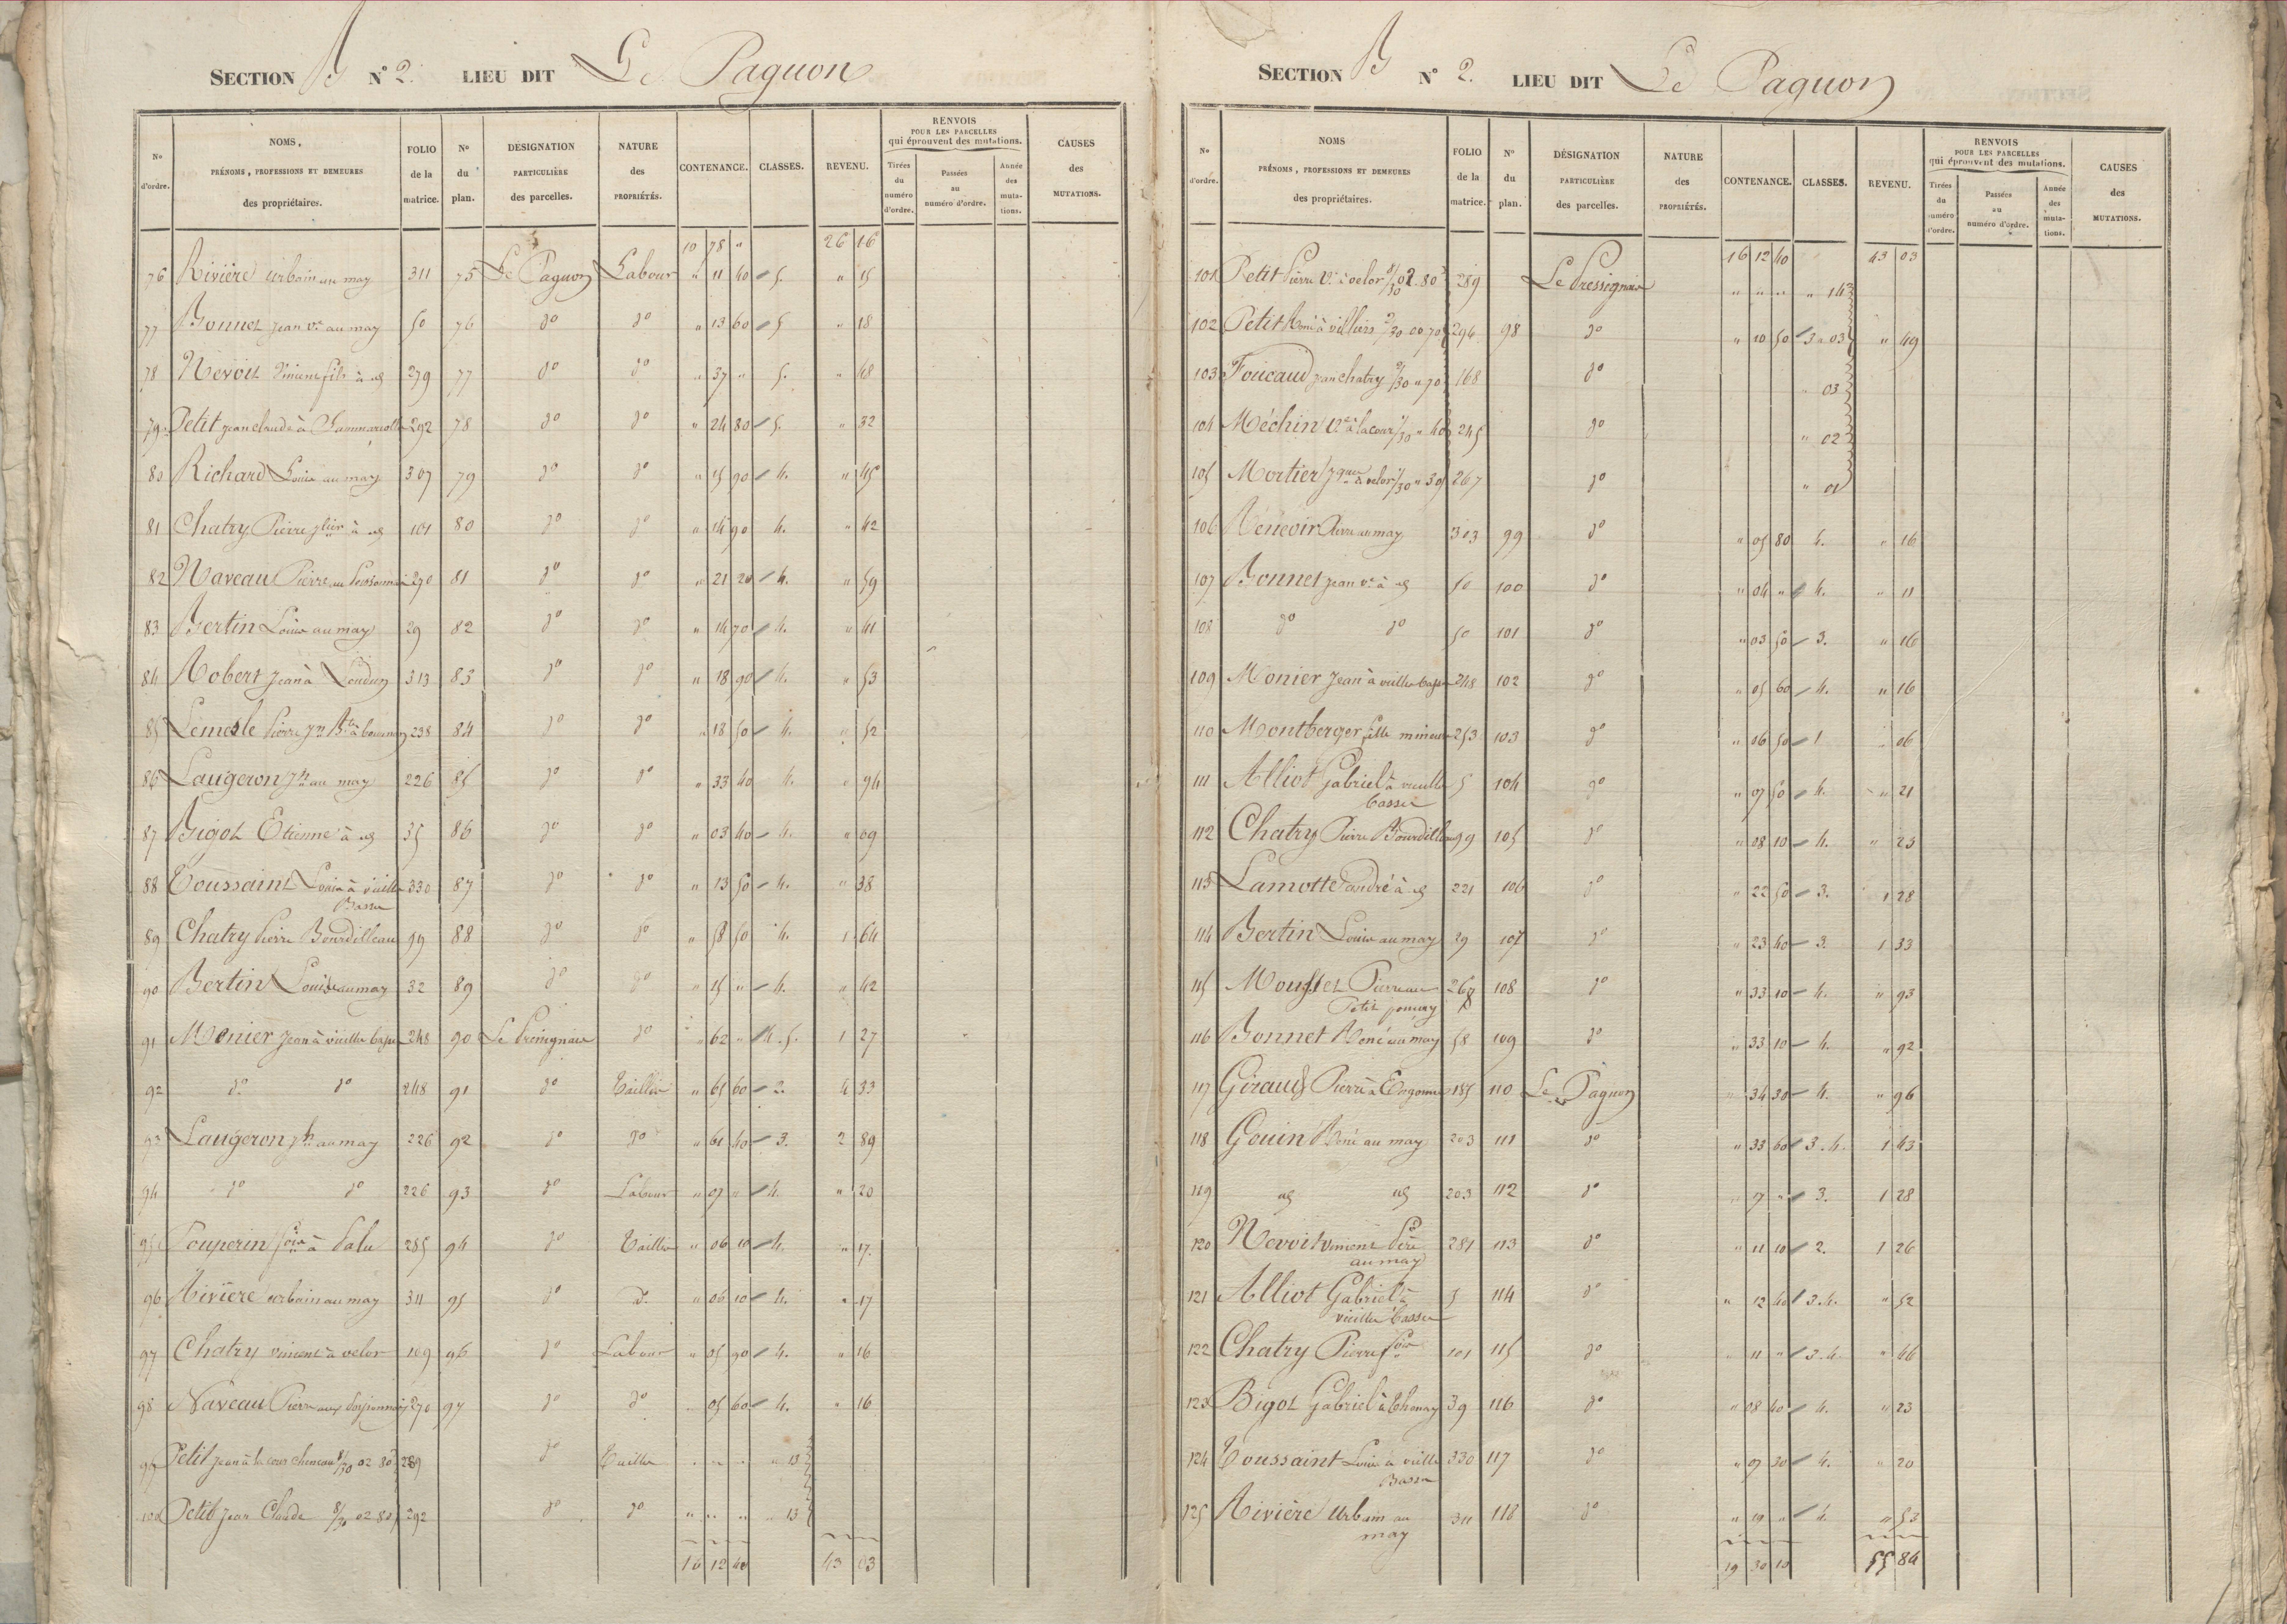 SECTION B N° 2. LIEU DIT Le Paguon
N° d'ordre. NOMS, PRÉNOMS, PROFESSIONS ET DEMEURES des propriétaires. FOLIO de la matrice. N° du plan. DÉSIGNATION PARTICULIÈRE des parcelles. NATURE des PROPRIÉTÉS. CONTENANCE. CLASSES. REVENU. RENVOIS POUR LES PARCELLES qui éprouvent des mutations. Tirées du numéro d'ordre. Passées au numéro d'ordre. Année des mutations. CAUSES des MUTATIONS.
10 78 " 26 16
76 Rivière Urbain au may 311 75 Le Paguon Labour " 11 40 5. " 15
77 Bonnet Jean Vt au may 50 76 do do " 13 60 5. " 18
78 Nevoit Vincent fils à us 279 77 do do " 37 " 5. " 48
79 Petit Jean claude à 292 78 do do " 24 80 5. " 32
80 Richard Louis au may 307 79 do do " 15 90 4. " 45
81 Chatry Pierre à us 101 80 do do " 14 90 4. " 42
82 Naveau Pierre au 270 81 do do " 21 20 4. " 59
83 Bertin Louis au may 29 82 do do " 14 70 4. " 41
84 Robert Jean à Loudun 313 83 do do " 18 90 4. " 53
85 Lemesle Pierre 238 84 do do " 18 50 4. " 52
86 Laugeron jh au may 226 85 do do " 33 40 4. " 94
87 Bigot Etienne à us 35 86 do do " 03 40 4. " 09
88 Toussaint Louis à vieille 330 87 do do " 13 50 4. " 38
Basse
89 Chatry Pierre Bourdilleau 99 88 do do " 58 50 4. 1 64
90 Bertin Louis au may 32 89 do do " 15 " 4. " 42
91 Monier Jean à vieille basse 248 90 do " 62 " 4.5. 1 27
92 do do 248 91 do Taillis " 65 60 2. 4 33
93 Laugeron jh au may 226 92 do do " 61 40 3. 2 89
94 do do 226 93 do Labour " 07 " 4. " 20
95 Pouperin à 285 94 do Taillis " 06 10 4. " 17.
96 Rivière urbain au may 311 95 do d. " 06 10 4. " 17
97 Chatry vincent à velor 109 96 do Labour " 05 90 4. " 16
98 Naveau Pierre aux 270 97 do do " 05 60 4. " 16
99 Petit Jean à la cour 8/30 02 80 289 do Taillis " " " " 13
100 Petit Jean Claude 8/30 02 80 292 do do " " " " 13
16 12 40 43 03
SECTION B N° 2. LIEU DIT Le Paguon
N° d'ordre. NOMS PRÉNOMS, PROFESSIONS ET DEMEURES des propriétaires. FOLIO de la matrice. N° du plan. DÉSIGNATION PARTICULIÈRE des parcelles. NATURE des PROPRIÉTÉS. CONTENANCE. CLASSES. REVENU. RENVOIS POUR LES PARCELLES qui éprouvent des mutations. Tirées du numéro d'ordre. Passées au numéro d'ordre. Année des mutations. CAUSES des MUTATIONS.
16 12 40 43 03
101 Petit Pierre Vt à velor 8/30 02 80 289 " " " " 14
102 Petit René à villiers 2/30 00 70 294 98 do " 10 50 3 " 03 " 49
103 Foucaud Jean chatry 2/30 " 70 168 do " 03
104 Méchin Ve à la cour 1/30 " 40 245 do " 02
105 Mortier à velor 1/30 " 30 267 do " 01
106 Pierre au may 303 99 do " 05 80 4. " 16
107 Bonnet Jean Vt à us 50 100 do " 04 " 4. " 11
108 do do 50 101 do " 03 50 3. " 16
109 Monier Jean à vieille basse 248 102 do " 05 60 4. " 16
110 Montberger fille mineure 253 103 do " 06 50 1 " 06
111 Alliot Gabriel à vieille 5 104 do " 07 50 4. " 21
basse
112 Chatry Pierre Bourdilleau 99 105 do " 08 10 4. " 23
113 Lamotte andré à us 221 106 do " 22 50 3. 1 28
114 Bertin Louis au may 29 107 do " 23 40 3. 1 33
115 Mousset Pierre au 268 108 do " 33 10 4. " 93
Petit
116 Bonnet René au may 58 109 do " 33 10 4. " 92
117 Giraud Pierre à 185 110 Le Paguon " 34 30 4. " 96
118 Gouin René au may 203 111 do " 33 60 3.4. 1 43
119 us us 203 112 do " 17 " 3. 1 28
120 Nevoit vincent Père 281 113 do " 11 10 2. 1 26
au may
121 Alliot Gabriel à 5 114 do " 12 40 3.4. " 52
vieille basse
122 Chatry Pierre 101 115 do " 11 " 3.4. " 46
123 Bigot Gabriel à Thenay 39 116 do " 08 40 4. " 23
124 Toussaint Louis à vieille 330 117 do " 07 30 4. " 20
Basse
125 Rivière Urbain au 311 118 do " 19 " 4. " 53
may
19 30 10 55 84